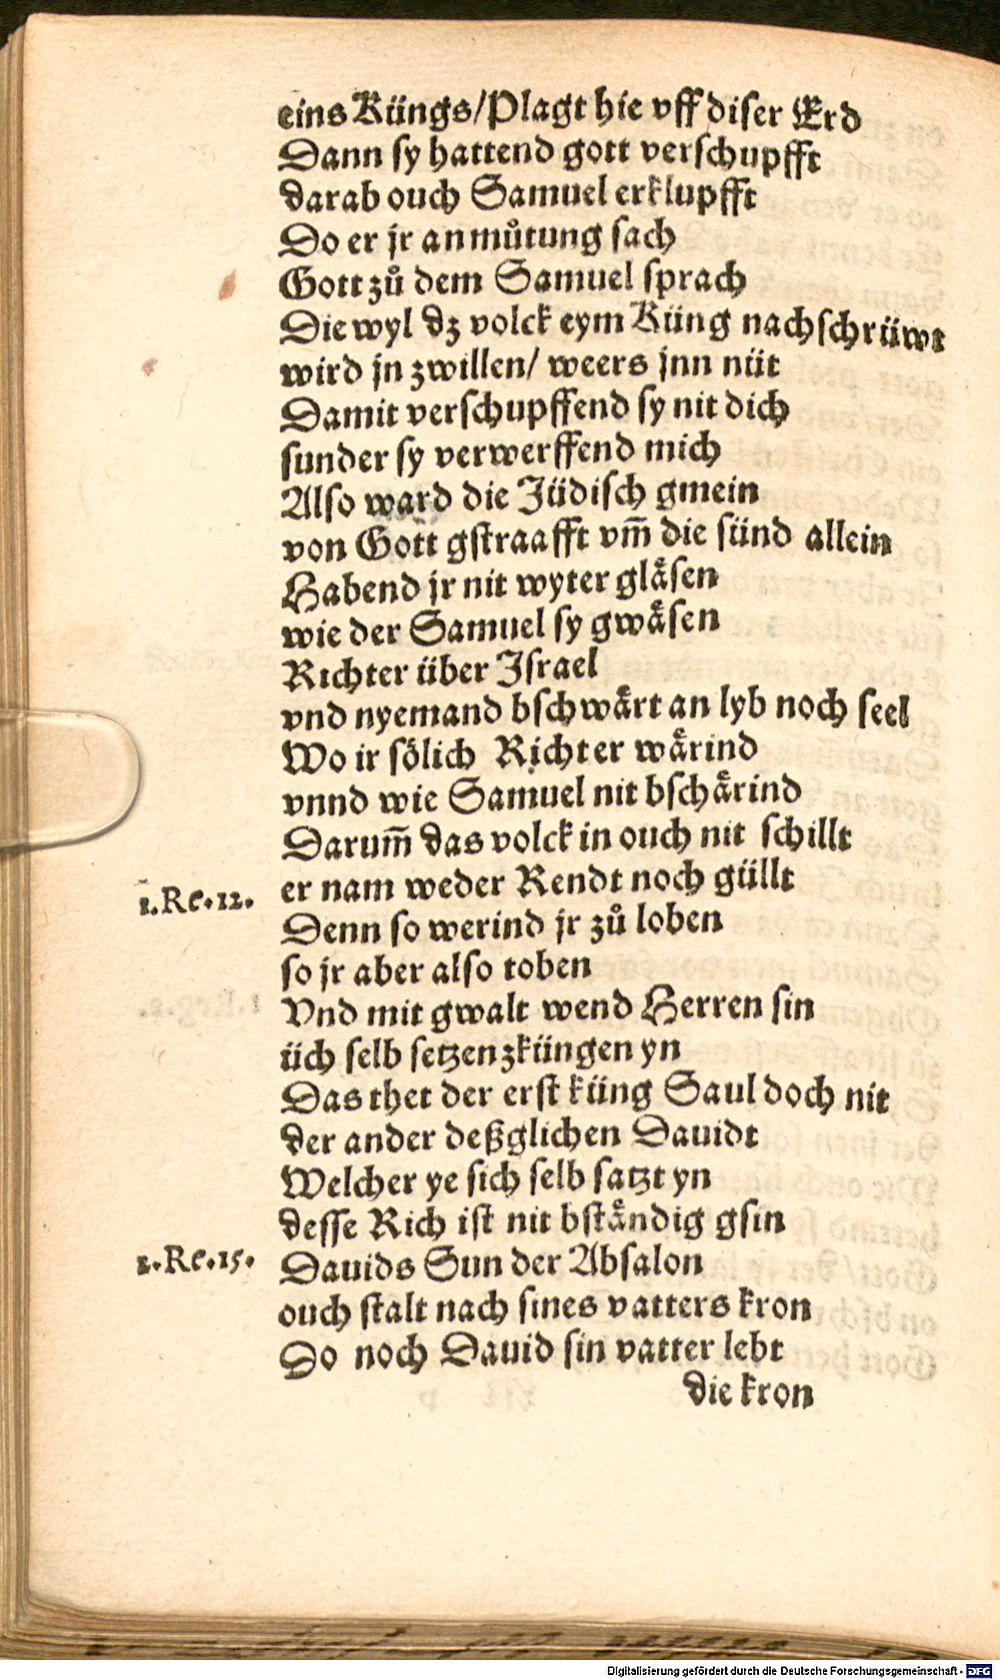 eins Küngs/Plagt hie vff diser Erd
Dann sy hattend gott verschupfft
darab ouch Samuel erklupfft
Do er jr anmůtung sach
Gott zů dem Samuel sprach
Die wyl dz volck eym Küng nachschrüwt
wird jn zwillen/ weers jnn nüt
Damit verschupffend sy nit dich
sunder sy verwerffend mich
Also ward die Jüdisch gmein
von Gott gstraafft vm̄ die sünd allein
Habend jr nit wyter gläsen
wie der Samuel sy gwäsen
Richter über Israel
vnd nyemand bschwärt an lyb noch seel
Wo ir sölich Richter wärind
vnnd wie Samuel nit bschärind
Darum̄ das volck in ouch nit schillt
1.Re.12. er nam weder Rendt noch güllt
Denn so werind jr zů loben
so jr aber also toben
Vnd mit gwalt wend Herren sin
üch selb setzen zküngen yn
Das thet der erst küng Saul doch nit
der ander deßglichen Dauidt
Welcher ye sich selb satzt yn
desse Rich ist nit bständig gsin
2.Re.15. Dauids Sun der Absalon
ouch stalt nach sines vatters kron
Do noch Dauid sin vatter lebt
die kron
Digitalisierung gefördert durch die Deutsche Forschungsgemeinschaft - DFG